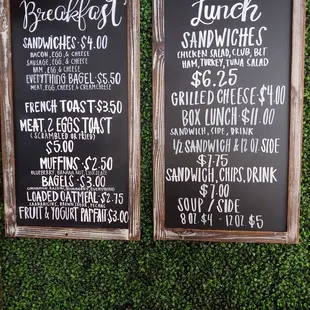 Breakfast
SANDWICHES • $4.00
BACON, EGG, & CHEESE
SAUSAGE, EGG, & CHEESE
HAM, EGG & CHEESE
EVERYTHING BAGEL • $5.50
MEAT, EGG, CHEESE & CREAMCHEESE
FRENCH TOAST • $3.50
MEAT, 2 EGGS, TOAST
(SCRAMBLED OR FRIED)
$5.00
MUFFINS • $2.50
BLUEBERRY, BANANA NUT, CHOCOLATE
BAGELS • $3.00
EVERYTHING
LOADED OATMEAL • $2.75
BROWN SUGAR, PECANS
FRUIT & YOGURT PARFAIT • $3.00
Lunch
SANDWICHES
CHICKEN SALAD, CLUB, BLT
HAM, TURKEY, TUNA SALAD
$6.25
GRILLED CHEESE • $4.00
BOX LUNCH • $11.00
SANDWICH, SIDE, DRINK
1/2 SANDWICH & 12 OZ SIDE
$7.75
SANDWICH, CHIPS, DRINK
$7.00
SOUP / SIDE
8 OZ $4 - 12 OZ $5